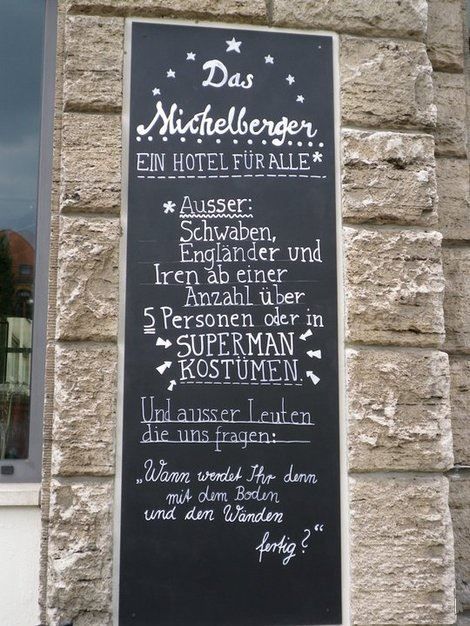 Das
Michelberger
EIN HOTEL FÜR ALLE*
*Ausser:
Schwaben,
Engländer und
Iren ab einer
Anzahl über
5 Personen oder in
SUPERMAN
KOSTÜMEN.
Und ausser Leuten
die uns fragen:
„Wann werdet Ihr denn
mit dem Boden
und den Wänden
fertig?“